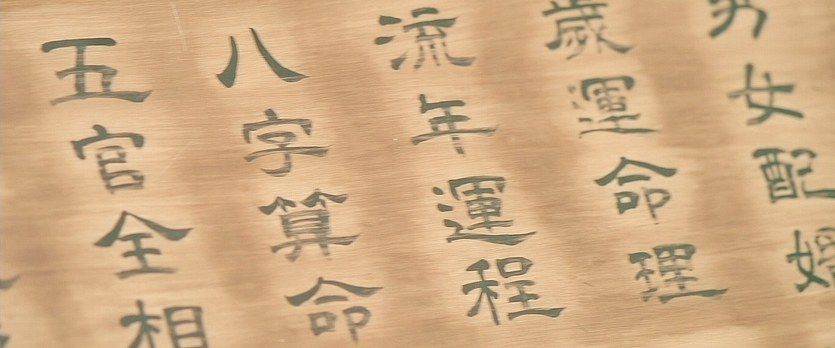 男女配婚
歲運命理
流年運程
八字算命
五官全相